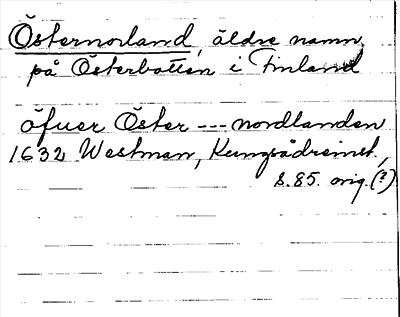 Östernorland, äldre namn
på Österbotten i Finland
öfuer Öster --- nordlanden
1632 Westman,
s. 85. orig. (?)